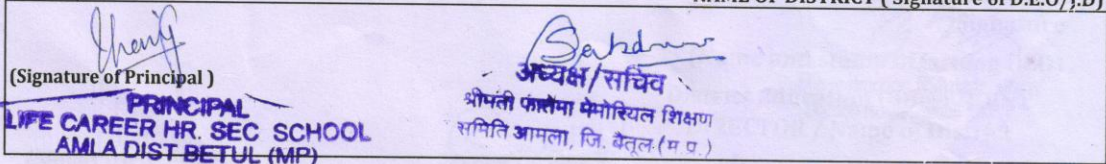 NAME OF DISTRICT ( Signature of D.E.O/J.D)
(Signature of Principal )
PRINCIPAL
LIFE CAREER HR. SEC SCHOOL
AMLA DIST BETUL (MP)
अध्यक्ष/सचिव
श्रीमती फातेमा मेमोरियल शिक्षण
समिति आमला, जि. बैतूल (म.प्र.)